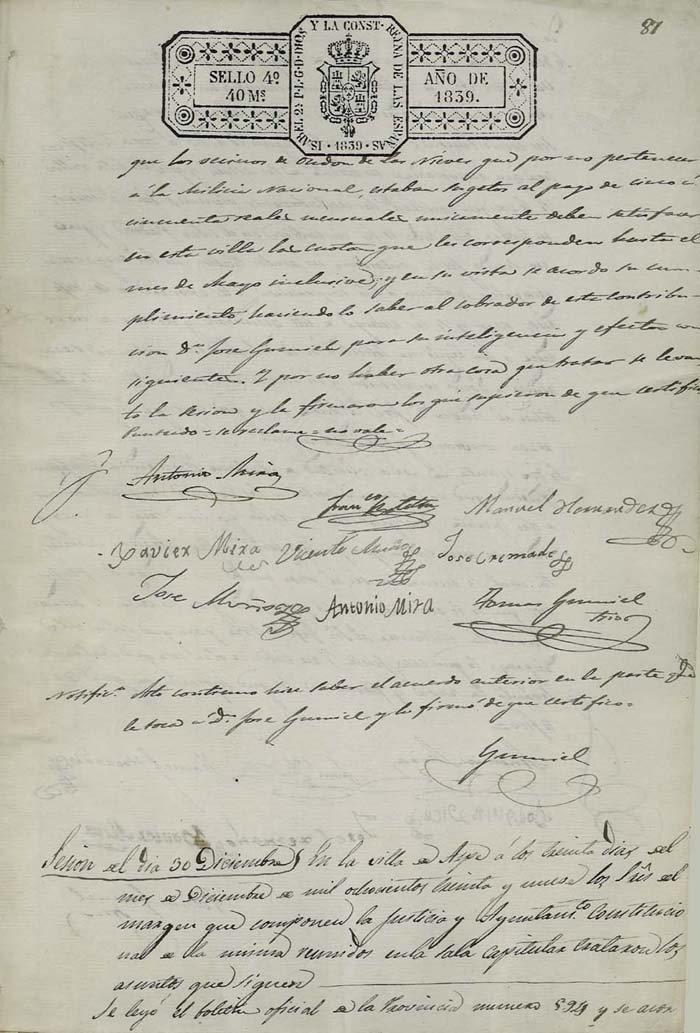 81
ISABEL 2ª P. L. G. D. DIOS Y LA CONST. REYNA DE LAS ESPAÑAS
SELLO 4º
40 Ms
AÑO DE
1839.
· 1839 ·
que los vecinos de Ondon de las Nieves que por no pertenecer
á la Milicia Nacional, estaban sugetos al pago de cinco á
cincuenta reales mensuales unicamente deben satisfacer
en esta villa las cuotas que les corresponden hasta el
mes de Mayo inclusive; y en su vista se acordo su cum
plimiento, haciendolo saber al cobrador de esta contribu
cion Dn. Jose Gumiel para su inteligencia y efectos con
siguientes. Y por no haber otra cosa que tratar se levan
tó la sesion y la firmaron los que supieron de que certifico
Punteado = se reclame = no vale =
Antonio Mira
Franco
Manuel Hernandez
Xavier Mira
Vicente Muñoz
Jose Cremades
Jose Muñoz
Antonio Mira
Tomas Gumiel
Srio
Notificn. Acto continuo hice saber el acuerdo anterior en la parte que
le toca á Dn. Jose Gumiel y lo firmó de que certifico =
Gumiel
Sesion del dia 30 Diciembre En la villa de Aspe á los treinta dias del
mes de Diciembre de mil ochocientos treinta y nueve los Sres. del
margen que componen la Justicia y Ayuntamto. Constitucio
nal de la misma reunidos en la sala capitular trataron los
asuntos que siguen
Se leyó el boletin oficial de la Provincia numero 594 y se acor